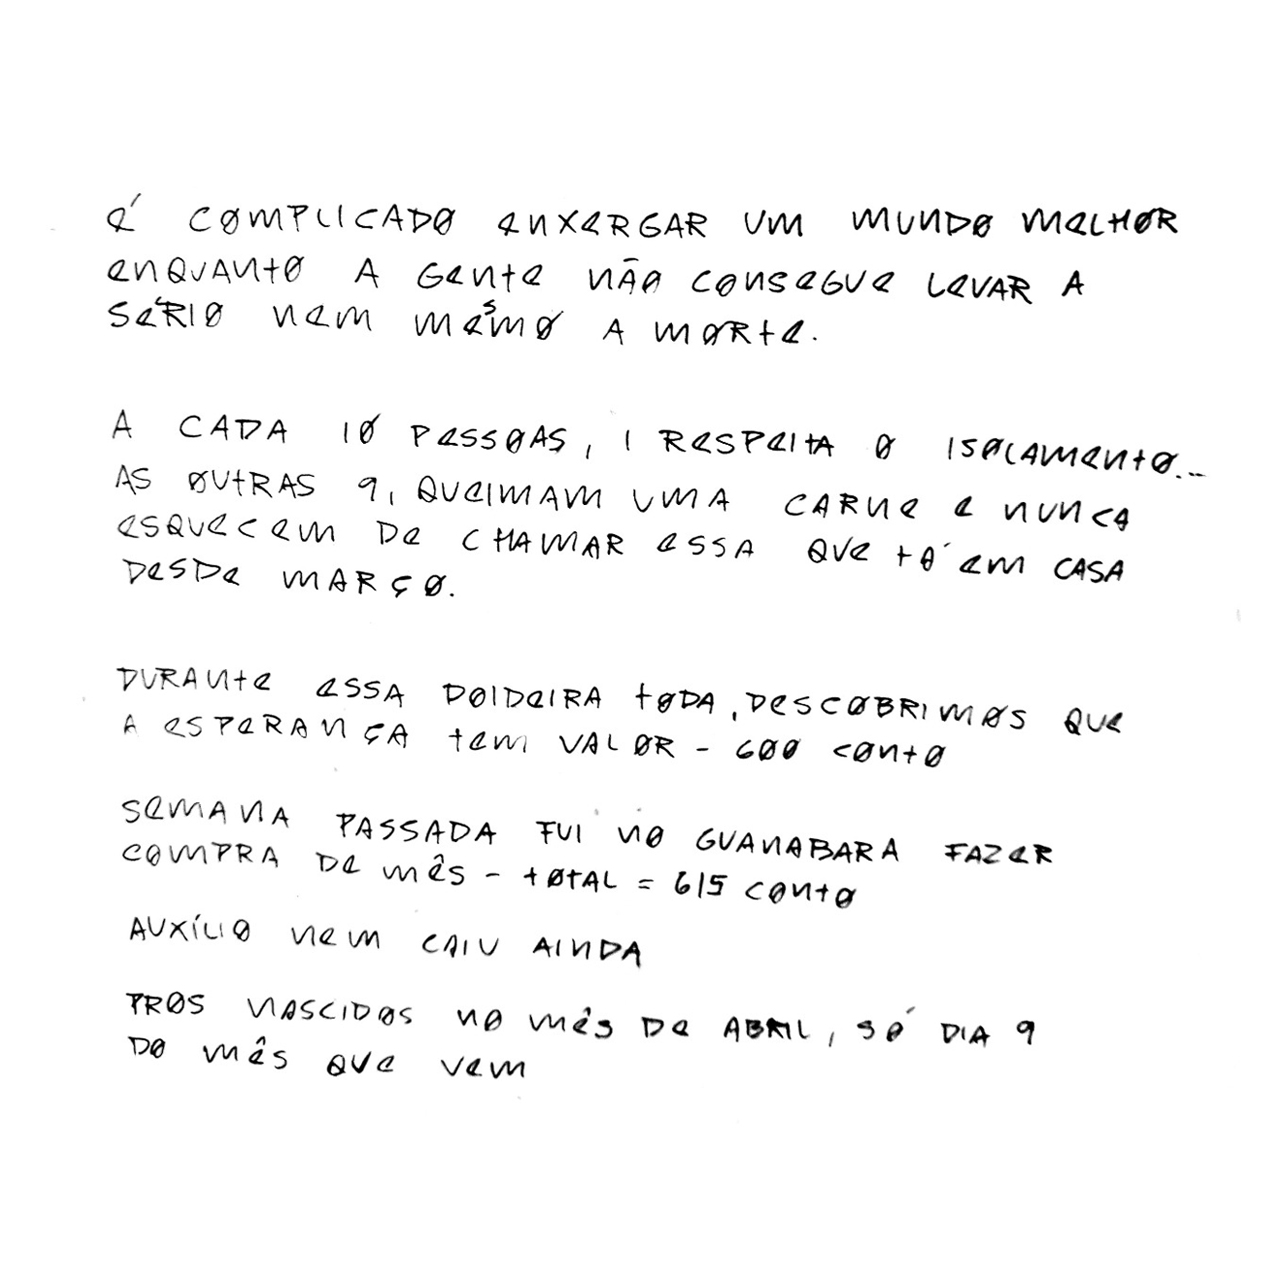 é COMPLICADO enxeRGAR UM MUNDO MeLHOR
enQUANtO A Gente NÃO CONSeGUe LeVAR A
SéRIO nem mesmo A MORte.
A CADA 10 PeSSOAS, 1 ReSPeItA O ISOLAMentO...
AS OUtRAS 9, QUeIMAM UMA CARne e nUnCA
eSQUeCem De CHAMAR eSSA QUe tá em CASA
DeSDe MARÇO.
DURAnte eSSA DOIDeIRA tODA, DeSCOBRIMOS QUe
A eSPeRAnÇA tem VALOR - 600 COntO
SemAnA PASSADA FUI nO GUAnABARA FAZeR
COMPRA De mês - tOtAL = 615 COntO
AUXÍLIO nem CAIU AInDA
PROS nASCIDOS nO mês De ABRIL, Só DIA 9
DO mês QUe Vem